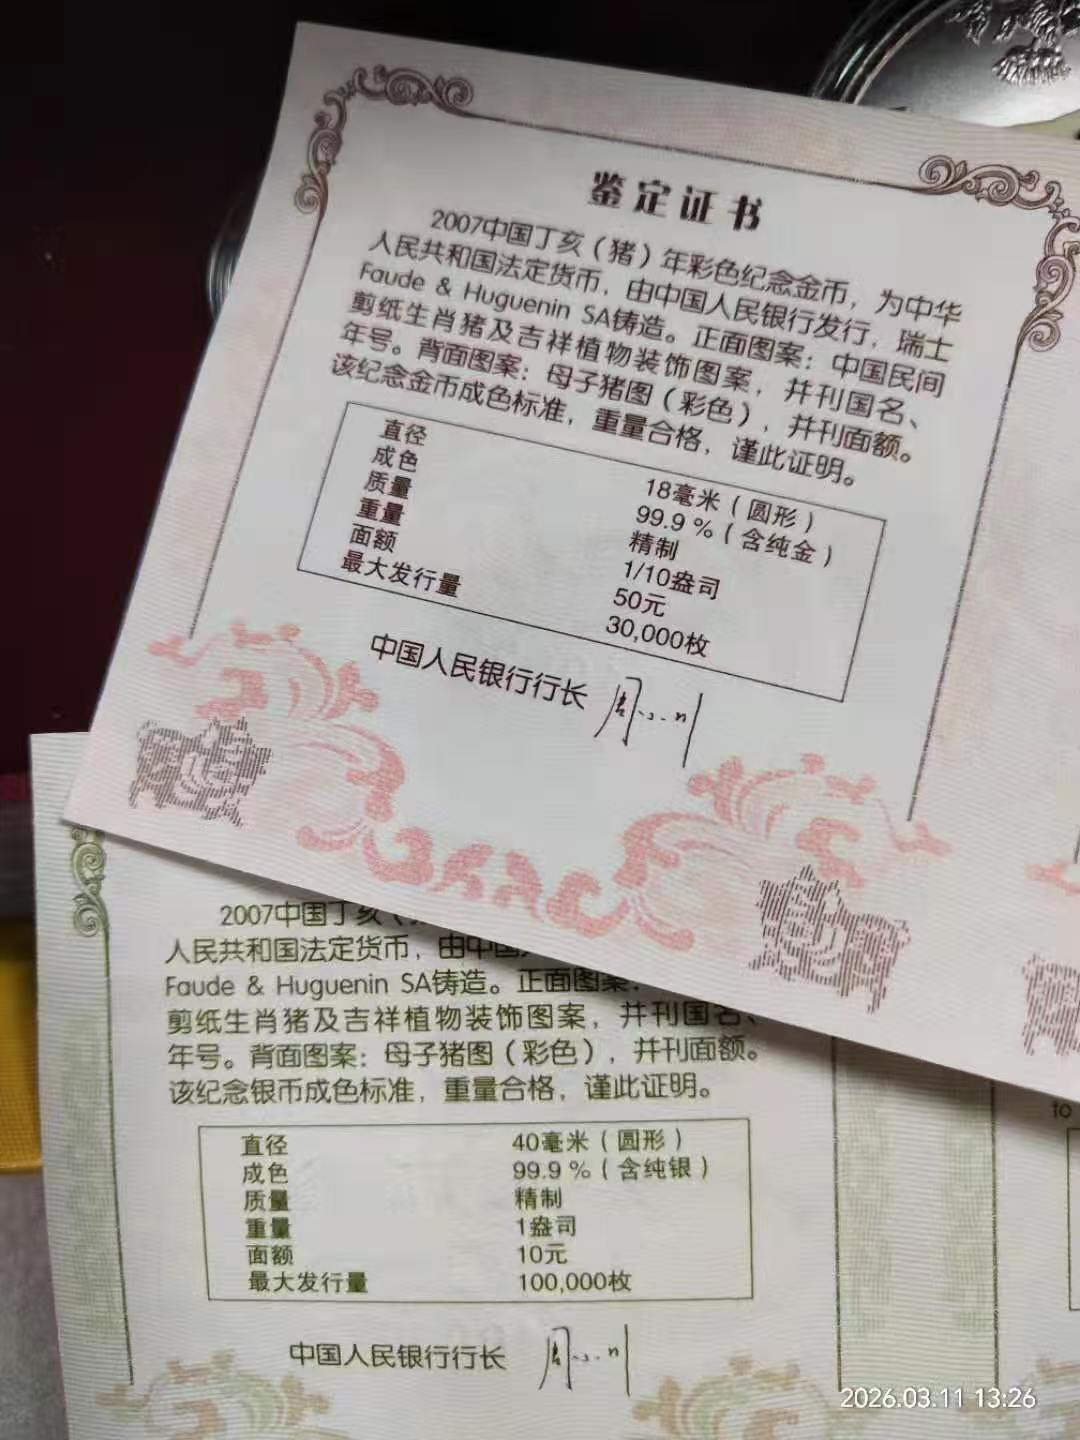 鉴定证书
2007中国丁亥（猪）年彩色纪念金币，为中华
人民共和国法定货币，由中国人民银行发行，瑞士
Faude & Huguenin SA铸造。正面图案：中国民间
剪纸生肖猪及吉祥植物装饰图案，并刊国名、
年号。背面图案：母子猪图（彩色），并刊面额。
该纪念金币成色标准，重量合格，谨此证明。
直径 18毫米（圆形）
成色 99.9 %（含纯金）
质量 精制
重量 1/10盎司
面额 50元
最大发行量 30,000枚
中国人民银行行长 周小川
2007中国丁亥（
人民共和国法定货币，由中国
Faude & Huguenin SA铸造。正面图案：
剪纸生肖猪及吉祥植物装饰图案，并刊国名、
年号。背面图案：母子猪图（彩色），并刊面额。
该纪念银币成色标准，重量合格，谨此证明。
直径 40毫米（圆形）
成色 99.9 %（含纯银）
质量 精制
重量 1盎司
面额 10元
最大发行量 100,000枚
中国人民银行行长 周小川
to
2026.03.11 13:26